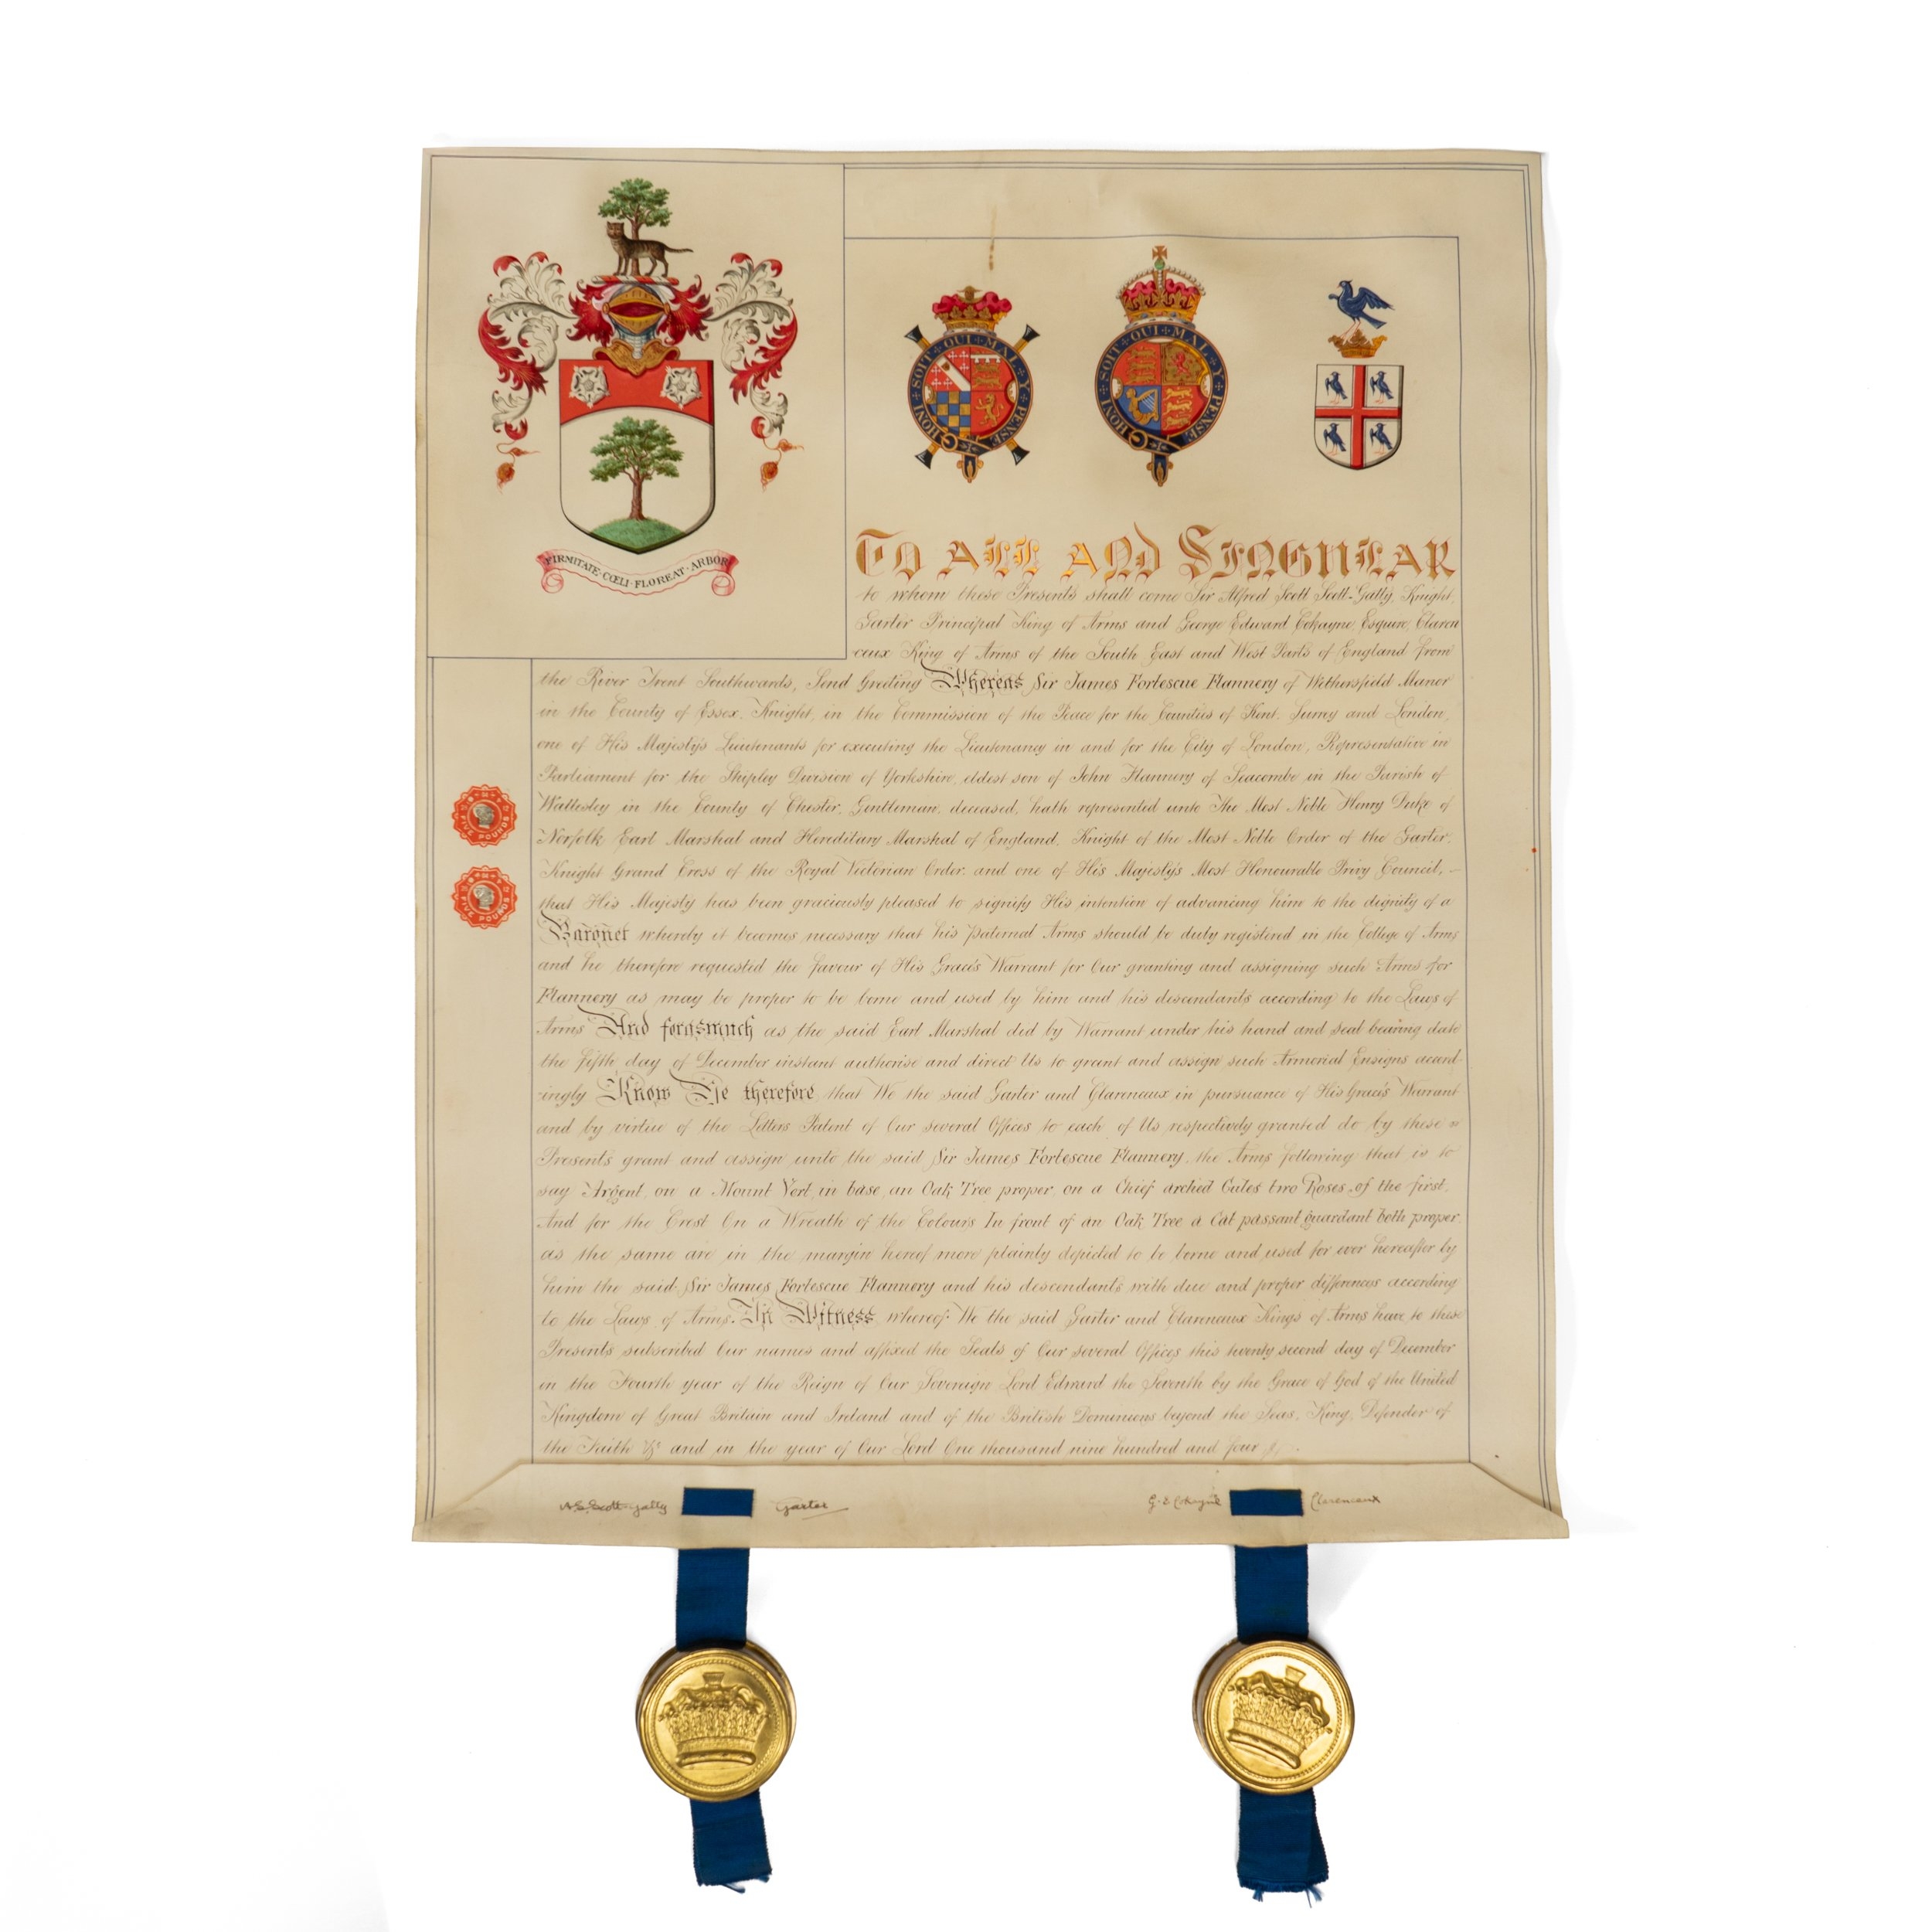 FIRMITATE·CŒLI·FLOREAT·ARBOR
HONI + SOIT + QUI + MAL + Y + PENSE
HONI + SOIT + QUI + MAL + Y + PENSE
TO ALL AND SINGULAR
to whom these Presents shall come Sir Alfred Scott Scott-Gatty, Knight,
Garter Principal King of Arms and George Edward Cokayne, Esquire, Claren
ceux King of Arms of the South East and West Parts of England from
the River Trent Southwards, Send Greeting Whereas Sir James Fortescue Flannery of Wethersfield Manor
in the County of Essex, Knight, in the Commission of the Peace for the Counties of Kent, Surrey and London,
one of His Majesty's Lieutenants for executing the Lieutenancy in and for the City of London, Representative in
Parliament for the Shipley Division of Yorkshire, eldest son of John Flannery of Seacombe in the Parish of
Wallesley in the County of Chester, Gentleman, deceased, hath represented unto The Most Noble Henry Duke of
Norfolk Earl Marshal and Hereditary Marshal of England, Knight of the Most Noble Order of the Garter,
Knight Grand Cross of the Royal Victorian Order, and one of His Majesty's Most Honourable Privy Council,
that His Majesty has been graciously pleased to signify His intention of advancing him to the dignity of a
Baronet whereby it becomes necessary that his paternal Arms should be duly registered in the College of Arms
and he therefore requested the favour of His Grace's Warrant for Our granting and assigning such Arms for
Flannery as may be proper to be borne and used by him and his descendants according to the Laws of
Arms And forasmuch as the said Earl Marshal did by Warrant under his hand and seal bearing date
the fifth day of December instant authorise and direct Us to grant and assign such Armorial Ensigns accord-
ingly Know Ye therefore that We the said Garter and Clarenceux in pursuance of His Grace's Warrant
and by virtue of the Letters Patent of Our several Offices to each of Us respectively granted do by these
Presents grant and assign unto the said Sir James Fortescue Flannery the Arms following that is to
say Argent, on a Mount Vert in base, an Oak Tree proper, on a Chief arched Gules two Roses of the first,
And for the Crest On a Wreath of the Colours In front of an Oak Tree a Cat passant guardant both proper,
as the same are in the margin hereof more plainly depicted to be borne and used for ever hereafter by
him the said Sir James Fortescue Flannery and his descendants with due and proper differences according
to the Laws of Arms. In Witness whereof We the said Garter and Clarenceux Kings of Arms have to these
Presents subscribed Our names and affixed the Seals of Our several Offices this twenty second day of December
in the Fourth year of the Reign of Our Sovereign Lord Edward the Seventh by the Grace of God of the United
Kingdom of Great Britain and Ireland and of the British Dominions beyond the Seas, King, Defender of
the Faith &c and in the year of Our Lord One thousand nine hundred and four
FIVE POUNDS
FIVE POUNDS
A. S. Scott-Gatty Garter
G. E. Cokayne Clarenceux